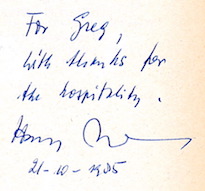 For Greg,
with thanks for
the hospitality.
21-10-1985